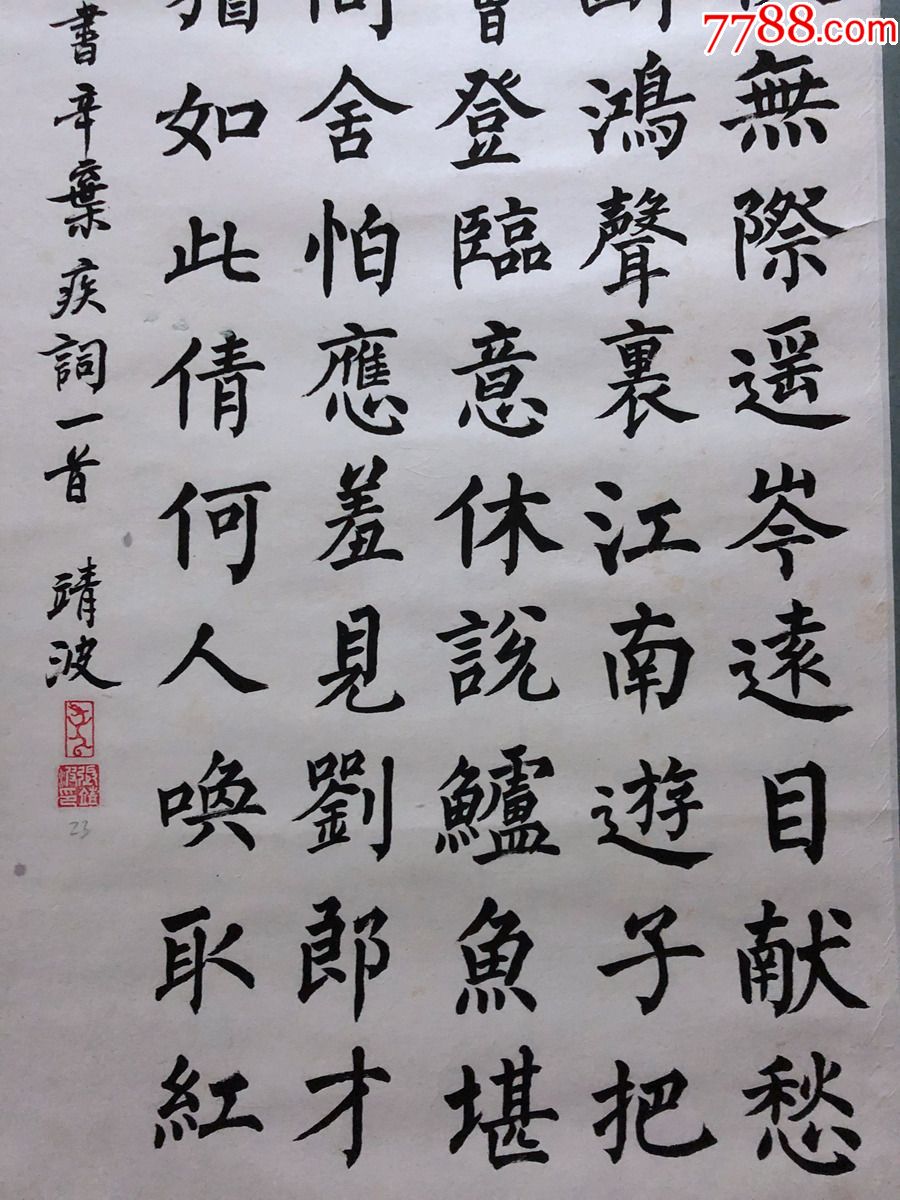 7788.com
無際遥岑遠目献愁
鴻聲裏江南遊子把
登臨意休說鱸魚堪
舍怕應羞見劉郎才
如此倩何人喚取紅
書辛棄疾詞一首 靖波
張靖波印
23